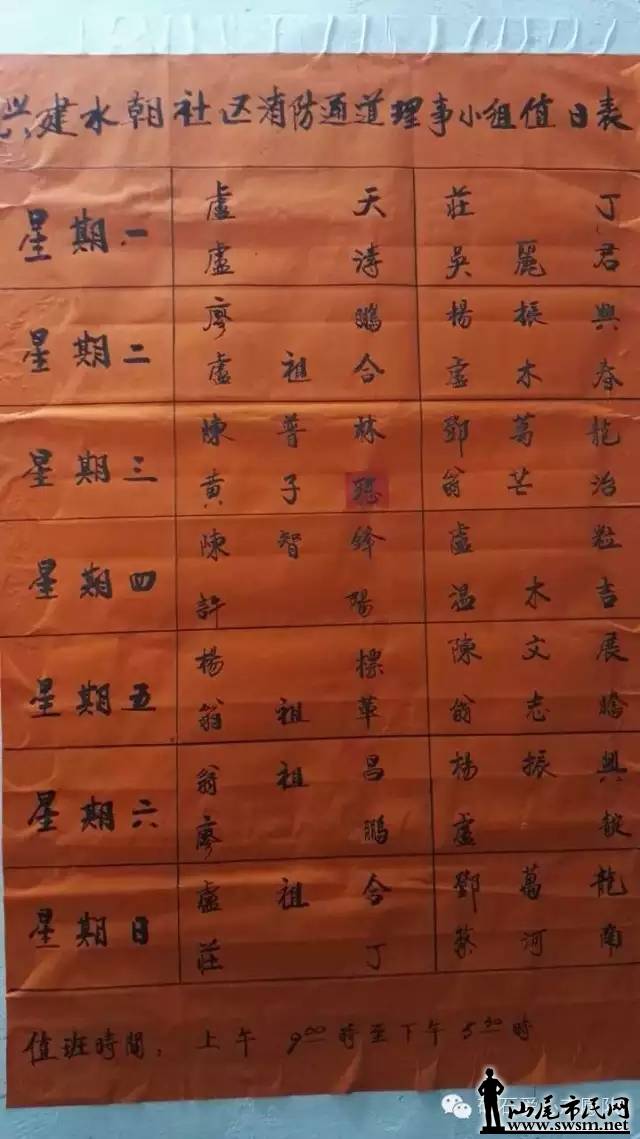 兴建水朝社区消防通道理事小组值日表
星期一 盧天 莊丁
盧涛 吳麗君
星期二 廖鵬 楊振興
盧祖合 盧木春
星期三 陳普林 鄧萬龍
黄子聪 翁芒治
星期四 陳智鋒 盧粒
許陽 温木吉
星期五 楊標 陳文展
翁祖華 翁志
星期六 翁祖昌 楊振興
廖鵬 盧
星期日 盧祖合 鄧萬龍
莊丁 蔡河南
值班時間：上午900時至下午530時
汕尾市民网
www.swsm.net